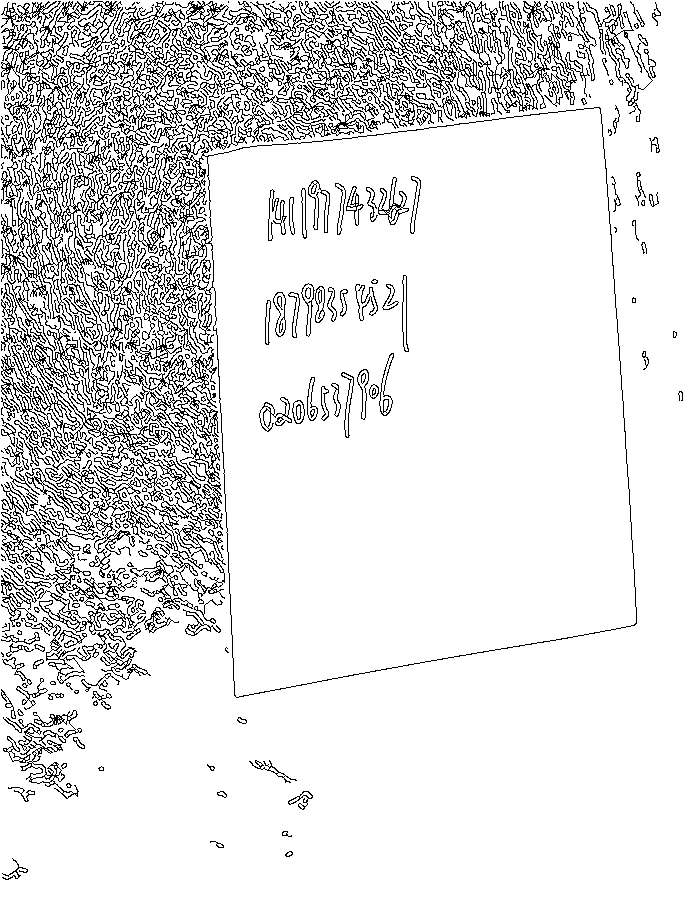 141197743267
18798354521
0206537906